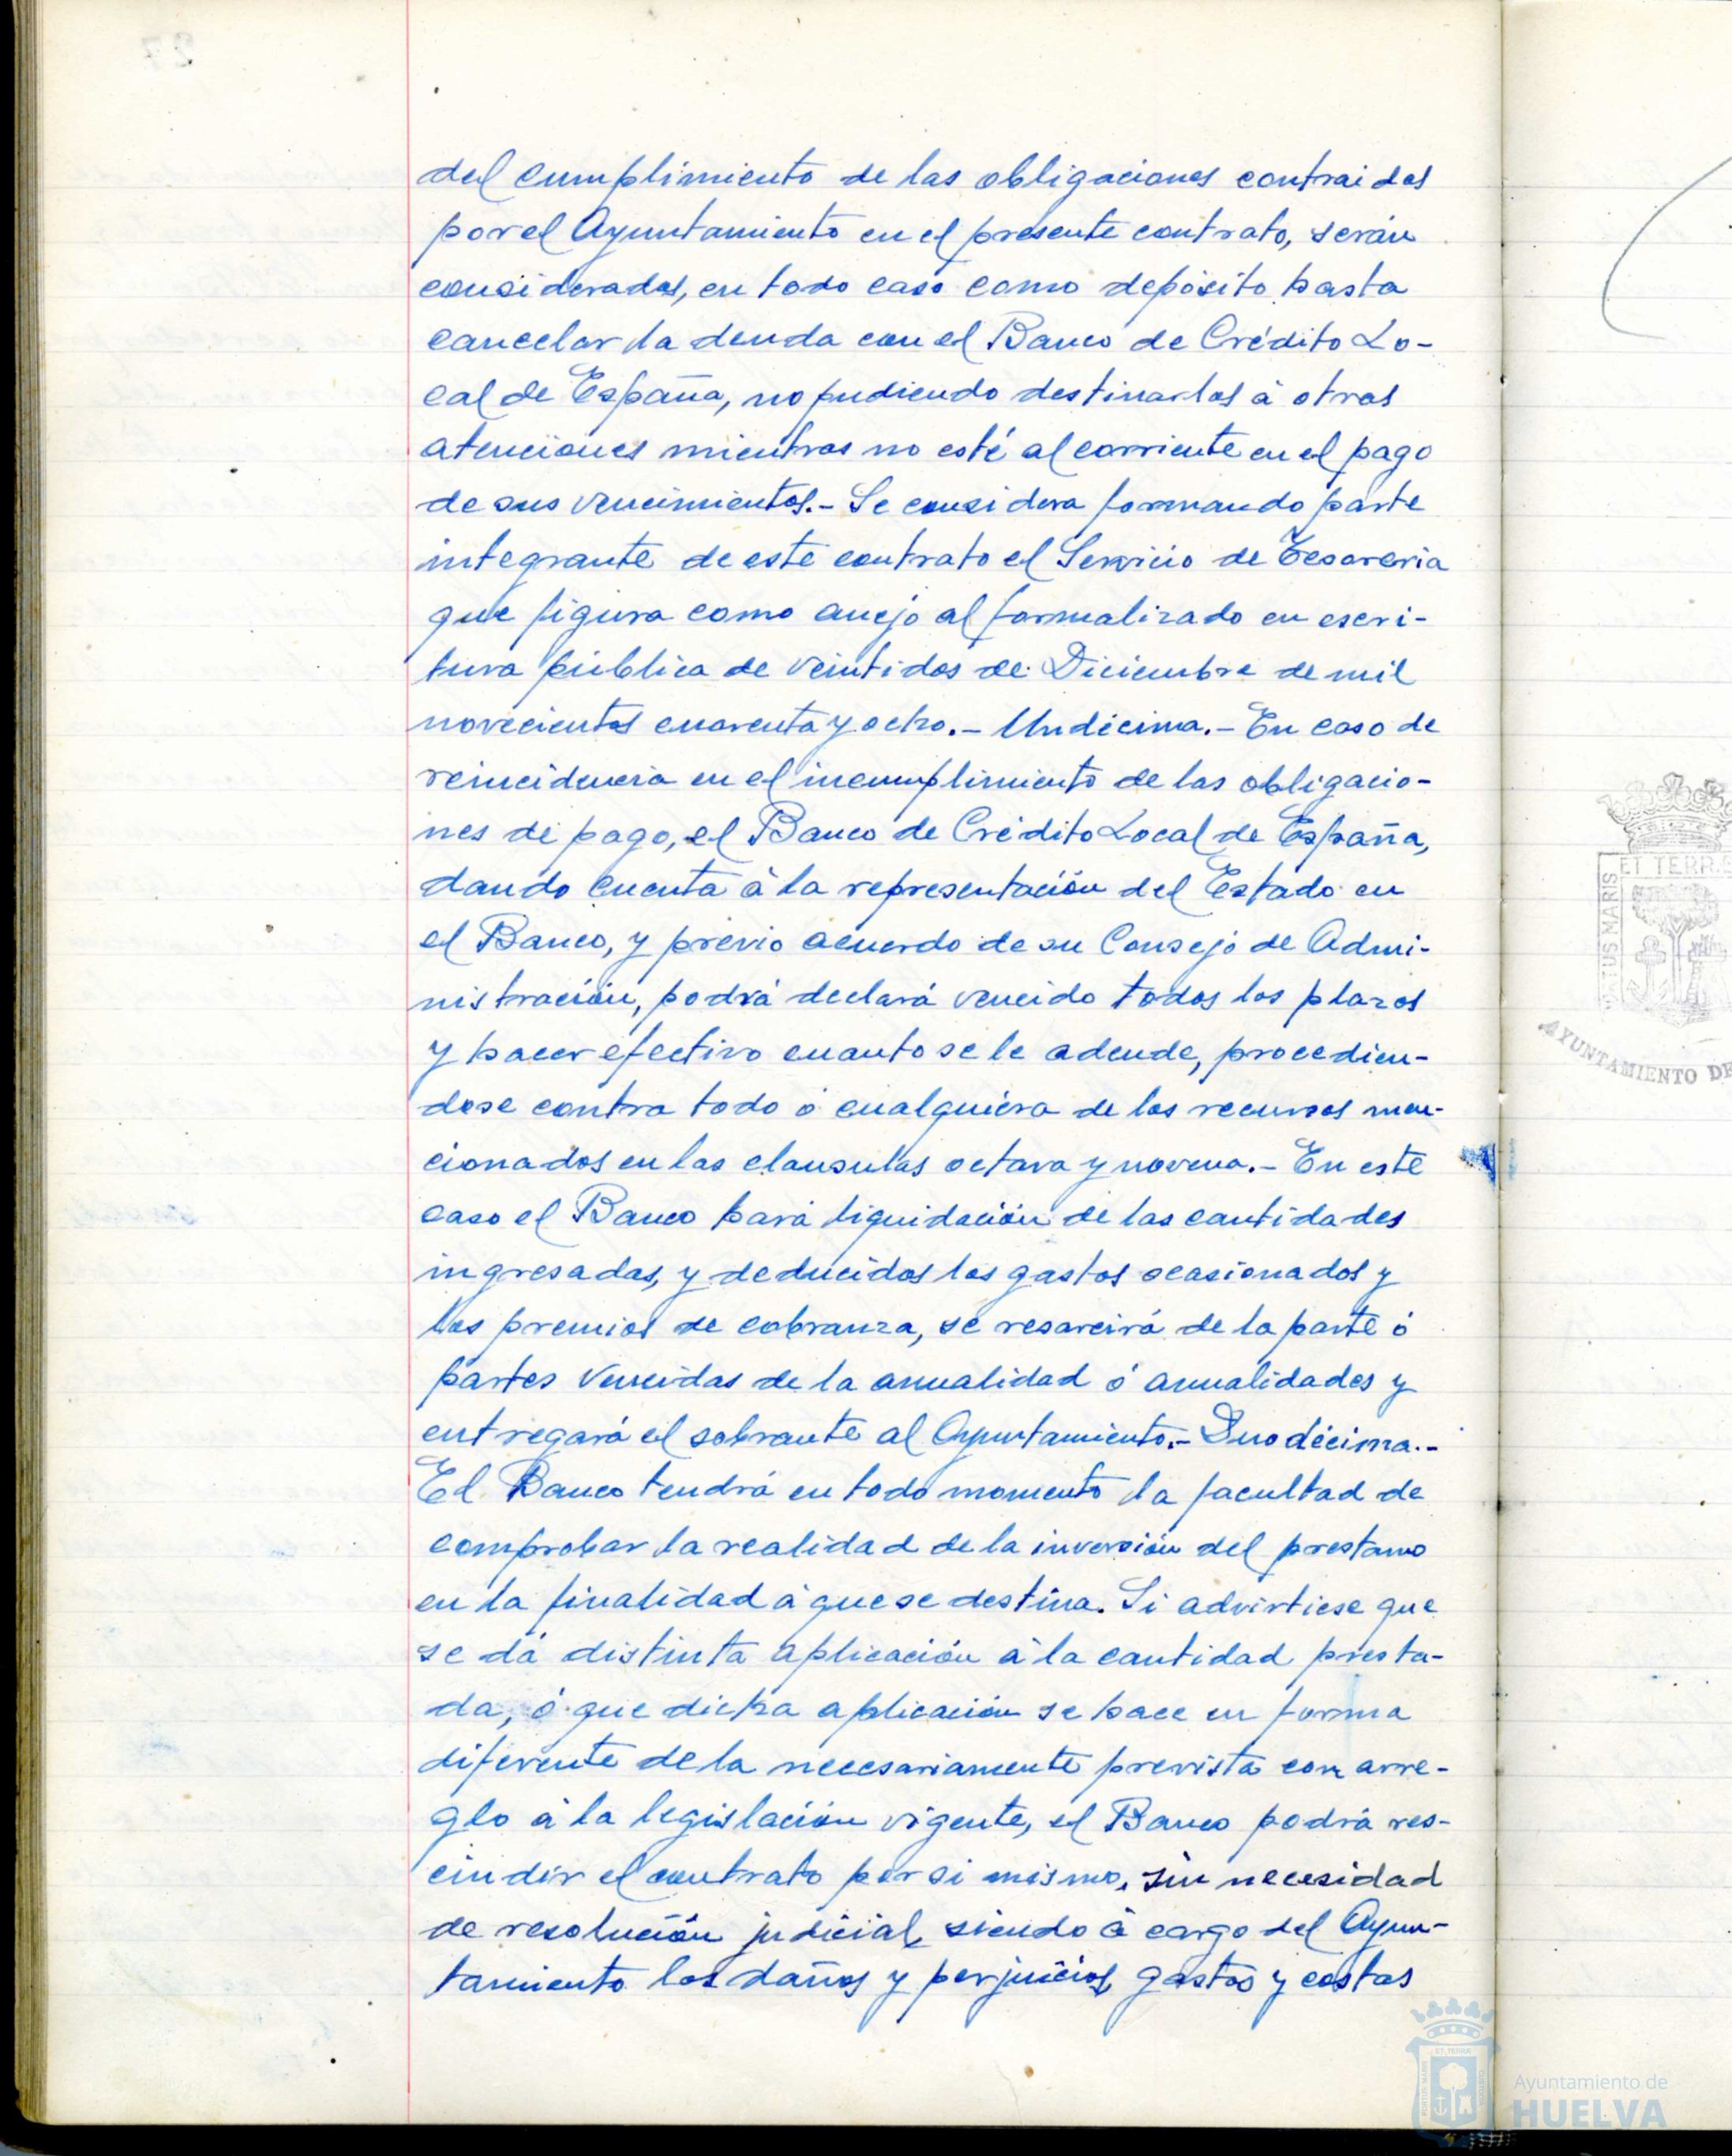 del cumplimiento de las obligaciones contraidas
por el Ayuntamiento en el presente contrato, serán
consideradas, en todo caso como depósito hasta
cancelar la deuda con el Banco de Crédito Lo-
cal de España, no pudiendo destinarlas á otras
atenciones mientras no esté al corriente en el pago
de sus vencimientos.- Se considera formando parte
integrante de este contrato el Servicio de Tesoreria
que figura como anejo al formalizado en escri-
tura pública de veintidos de Diciembre de mil
novecientos cuarenta y ocho.- Undécima.- En caso de
reincidencia en el incumplimiento de las obligacio-
nes de pago, el Banco de Crédito Local de España,
dando cuenta á la representación del Estado en
el Banco, y previo acuerdo de su Consejo de Admi-
nistración, podrá declará vencido todos los plazos
y hacer efectivo cuanto se le adeude, procedien-
dose contra todo ó cualquiera de los recursos men-
cionados en las clausulas octava y novena.- En este
caso el Banco hará liquidación de las cantidades
ingresadas, y deducidos los gastos ocasionados y
los premios de cobranza, se resarcirá de la parte ó
partes vencidas de la anualidad ó anualidades y
entregará el sobrante al Ayuntamiento.- Duodécima.-
El Banco tendrá en todo momento la facultad de
comprobar la realidad de la inversión del prestamo
en la finalidad á que se destina. Si advirtiese que
se dá distinta aplicación á la cantidad presta-
da, ó que dicha aplicación se hace en forma
diferente de la necesariamente prevista con arre-
glo á la legislación vigente, el Banco podrá res-
cindir el contrato por si mismo, sin necesidad
de resolución judicial, siendo á cargo del Ayun-
tamiento los daños y perjuicios, gastos y costas
ET TERRÆ
MARIS
AYUNTAMIENTO DE
Ayuntamiento de
HUELVA